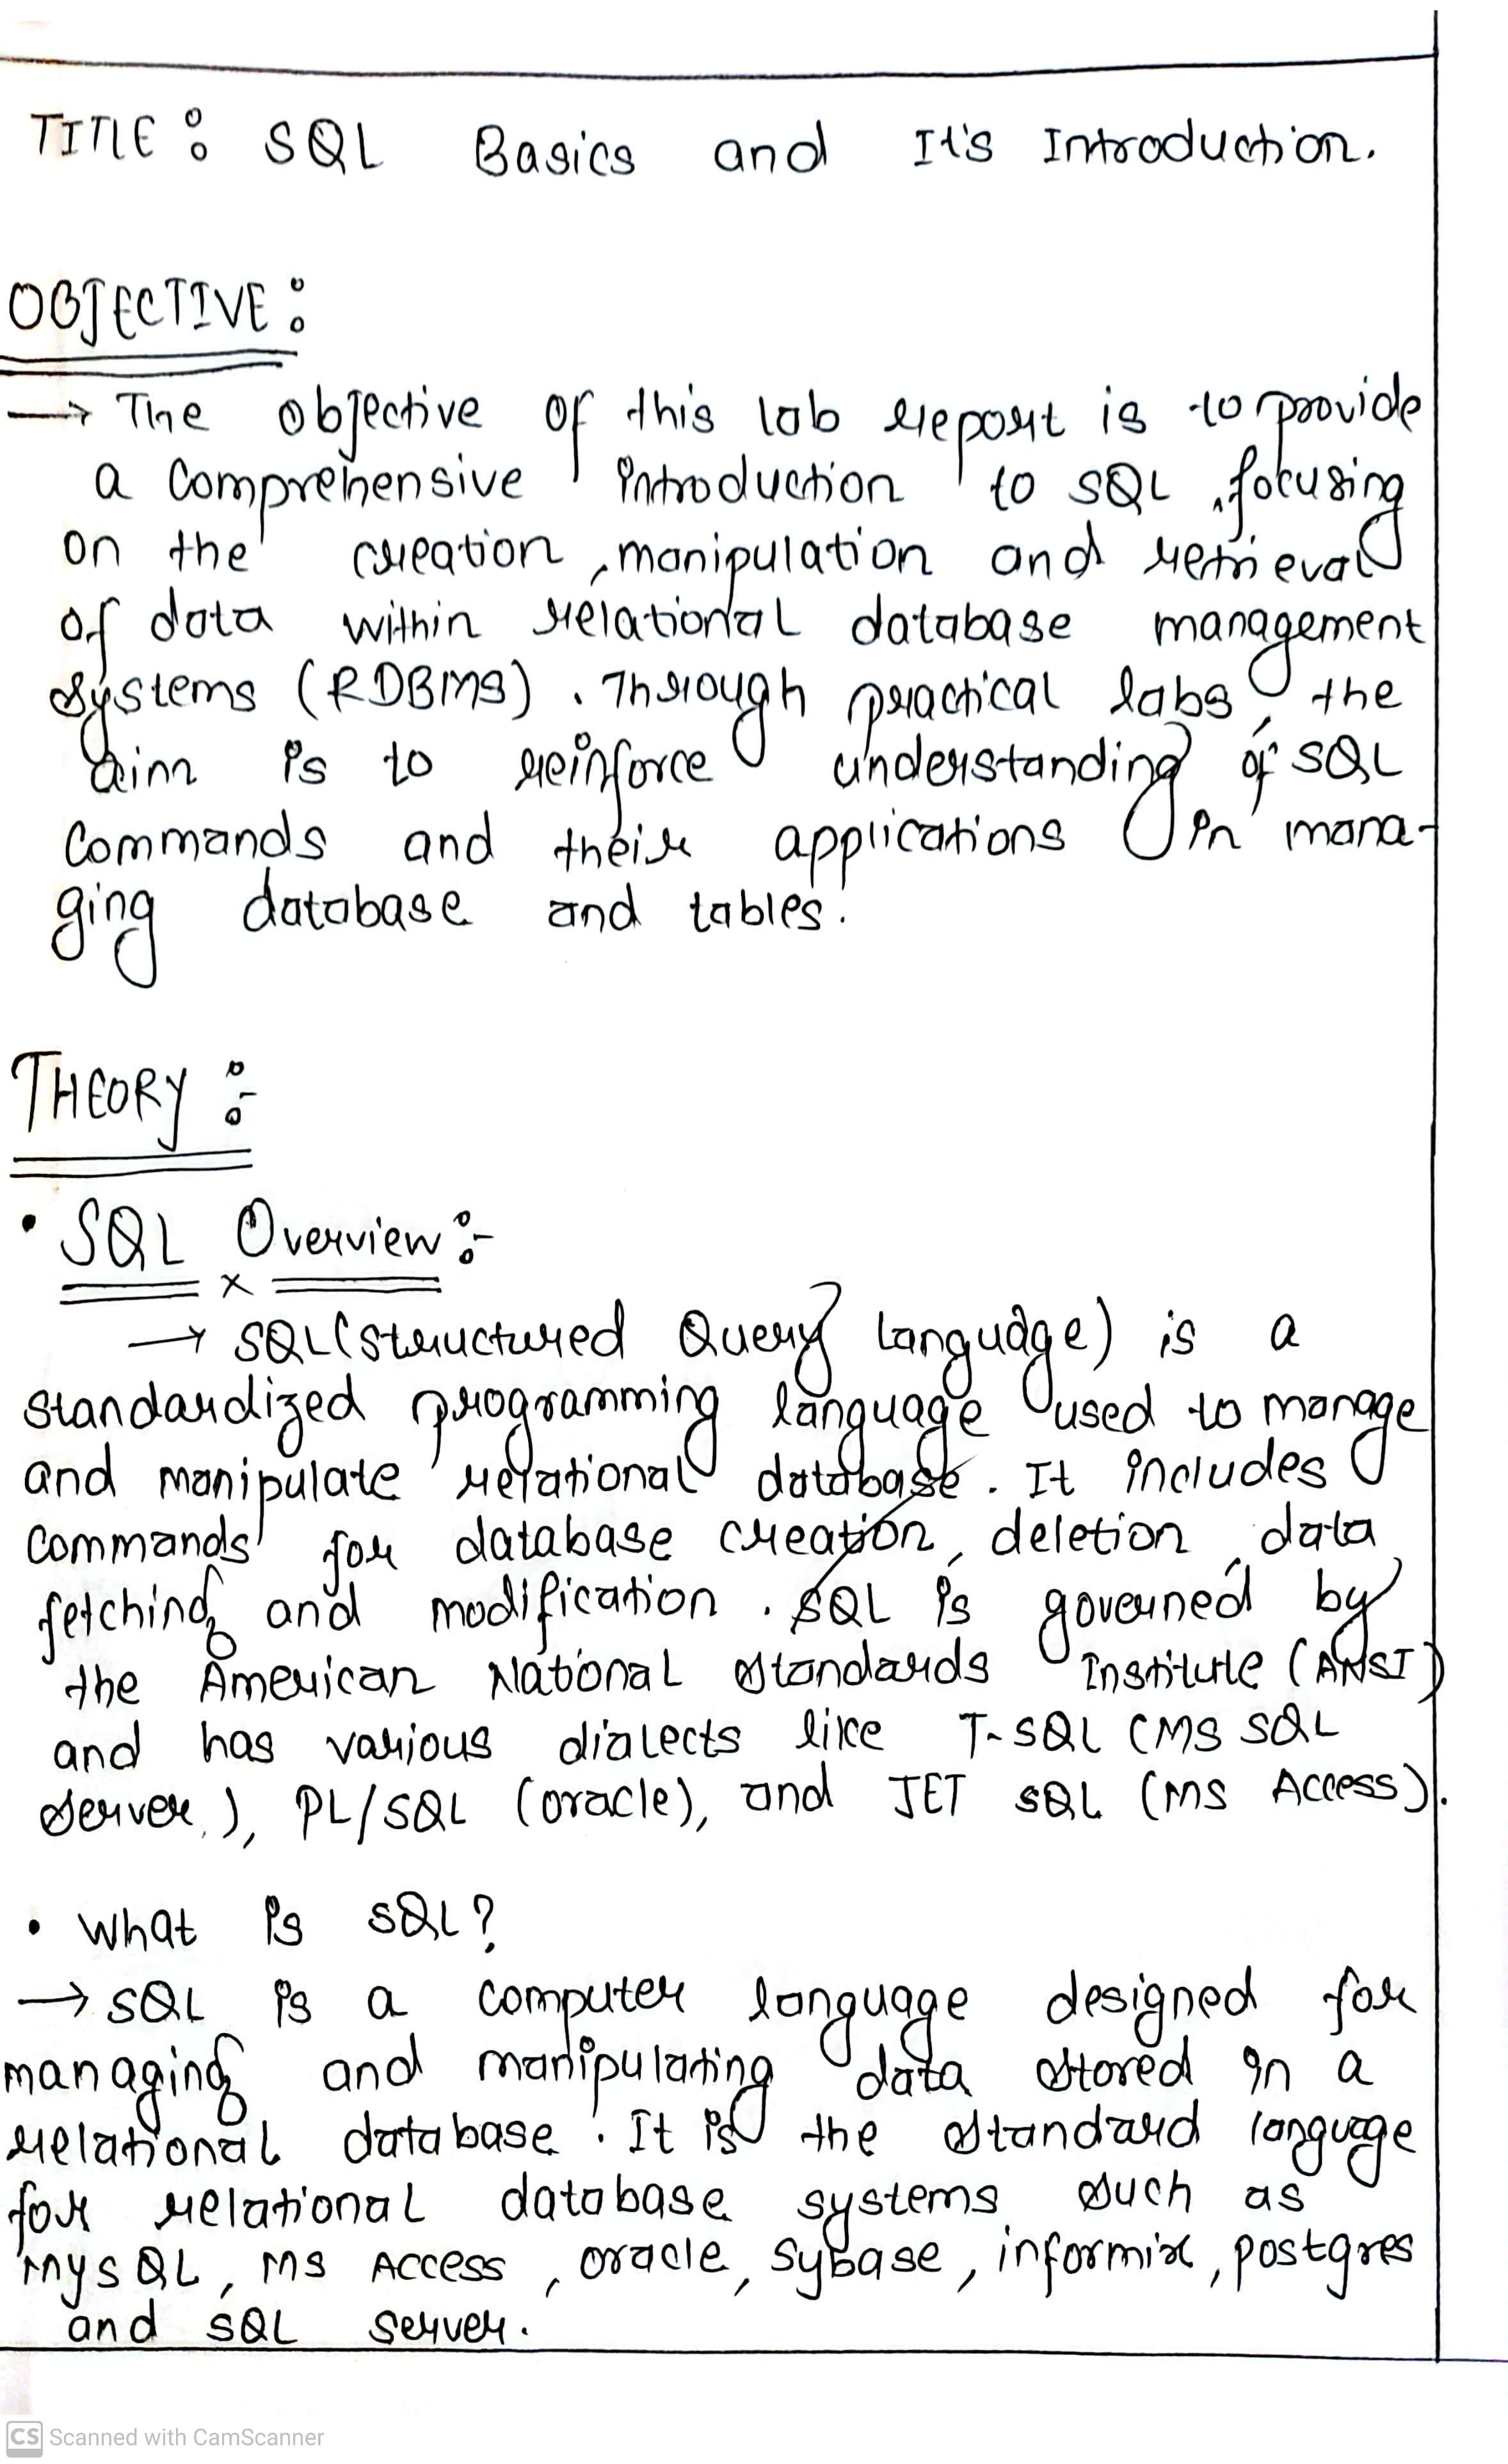 TITLE: SQL Basics and It's Introduction.
OBJECTIVE:
→ The objective of this lab report is to provide
a comprehensive introduction to SQL, focusing
on the creation, manipulation and retrieval
of data within relational database management
systems (RDBMS). Through practical labs, the
aim is to reinforce understanding of SQL
commands and their applications in mana-
ging database and tables.
THEORY :-
• SQL Overview :-
→ SQL (structured Query language) is a
standardized programming language used to manage
and manipulate relational database. It includes
commands for database creation, deletion, data
fetching and modification. SQL is governed by
the American National Standards Institute (ANSI)
and has various dialects like T-SQL (MS SQL
server), PL/SQL (oracle), and JET SQL (MS Access).
• what is SQL?
→ SQL is a computer language designed for
managing and manipulating data stored in a
relational database. It is the standard language
for relational database systems such as
MySQL, MS Access, oracle, sybase, informix, postgres
and SQL server.
CS Scanned with CamScanner